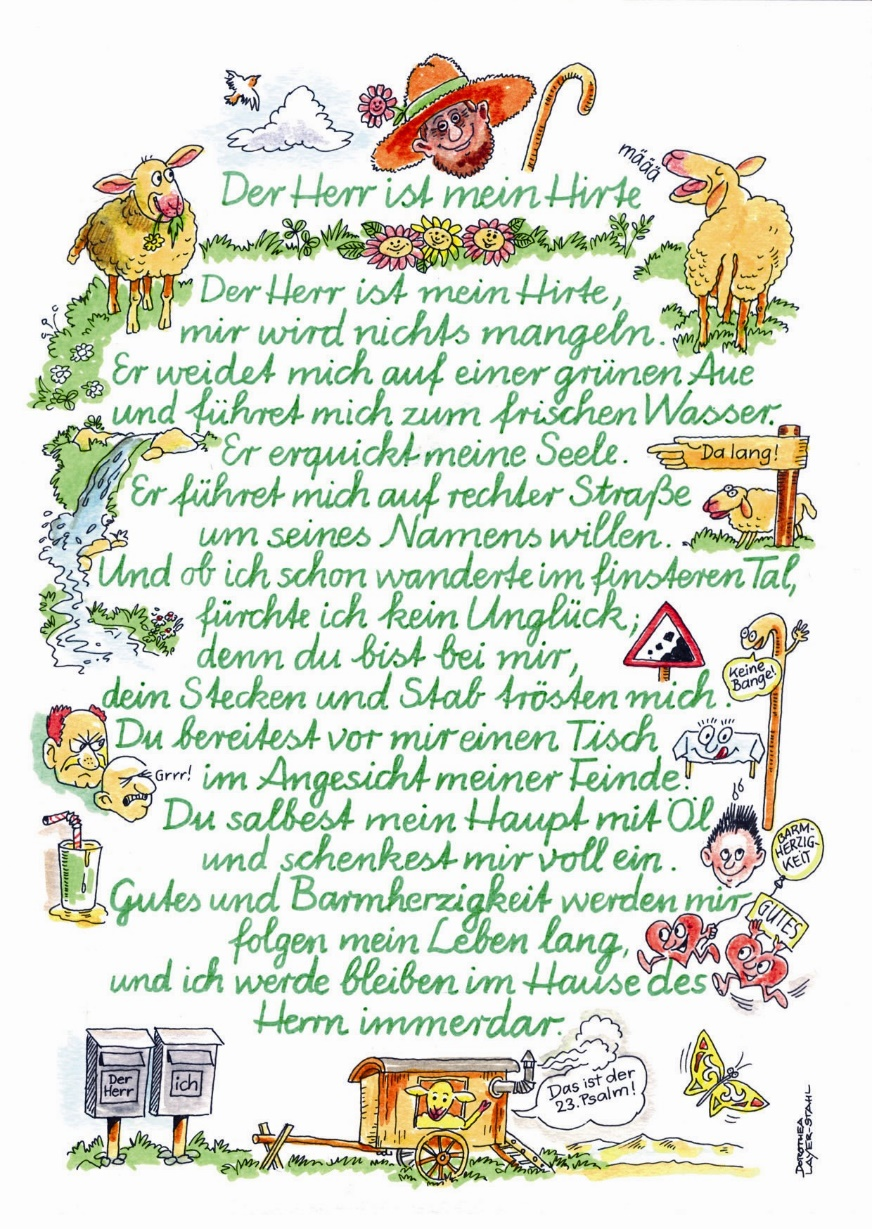 määä
Der Herr ist mein Hirte
Der Herr ist mein Hirte,
mir wird nichts mangeln.
Er weidet mich auf einer grünen Aue
und führet mich zum frischen Wasser.
Er erquickt meine Seele.
Da lang!
Er führet mich auf rechter Straße
um seines Namens willen.
Und ob ich schon wanderte im finsteren Tal,
fürchte ich kein Unglück;
denn du bist bei mir,
Keine
Bange!
dein Stecken und Stab trösten mich.
Du bereitest vor mir einen Tisch
Grrr!
im Angesicht meiner Feinde.
Du salbest mein Haupt mit Öl
und schenkest mir voll ein.
BARM-
HERZIG-
KEIT
Gutes und Barmherzigkeit werden mir
GUTES
folgen mein Leben lang,
und ich werde bleiben im Hause des
Herrn immerdar.
Der
Herr
ich
Das ist der
23. Psalm!
DOROTHEA
LAYER-STAHL